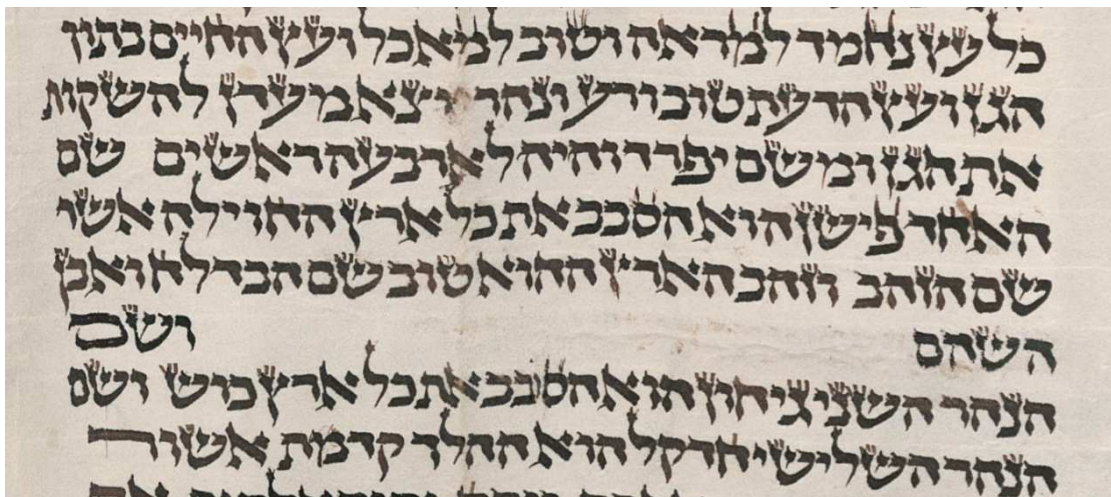 כל עץ נחמד למראה וטוב למאכל ועץ החיים בתוך
הגן ועץ הדעת טוב ורע ונהר יצא מעדן להשקות
את הגן ומשם יפרד והיה לארבעה ראשים שם
האחד פישון הוא הסבב את כל ארץ החוילה אשר
שם הזהב וזהב הארץ ההוא טוב שם הבדלח ואבן
השהם ושם
הנהר השני גיחון הוא הסבב את כל ארץ כוש ושם
הנהר השלישי חדקל הוא ההלך קדמת אשור